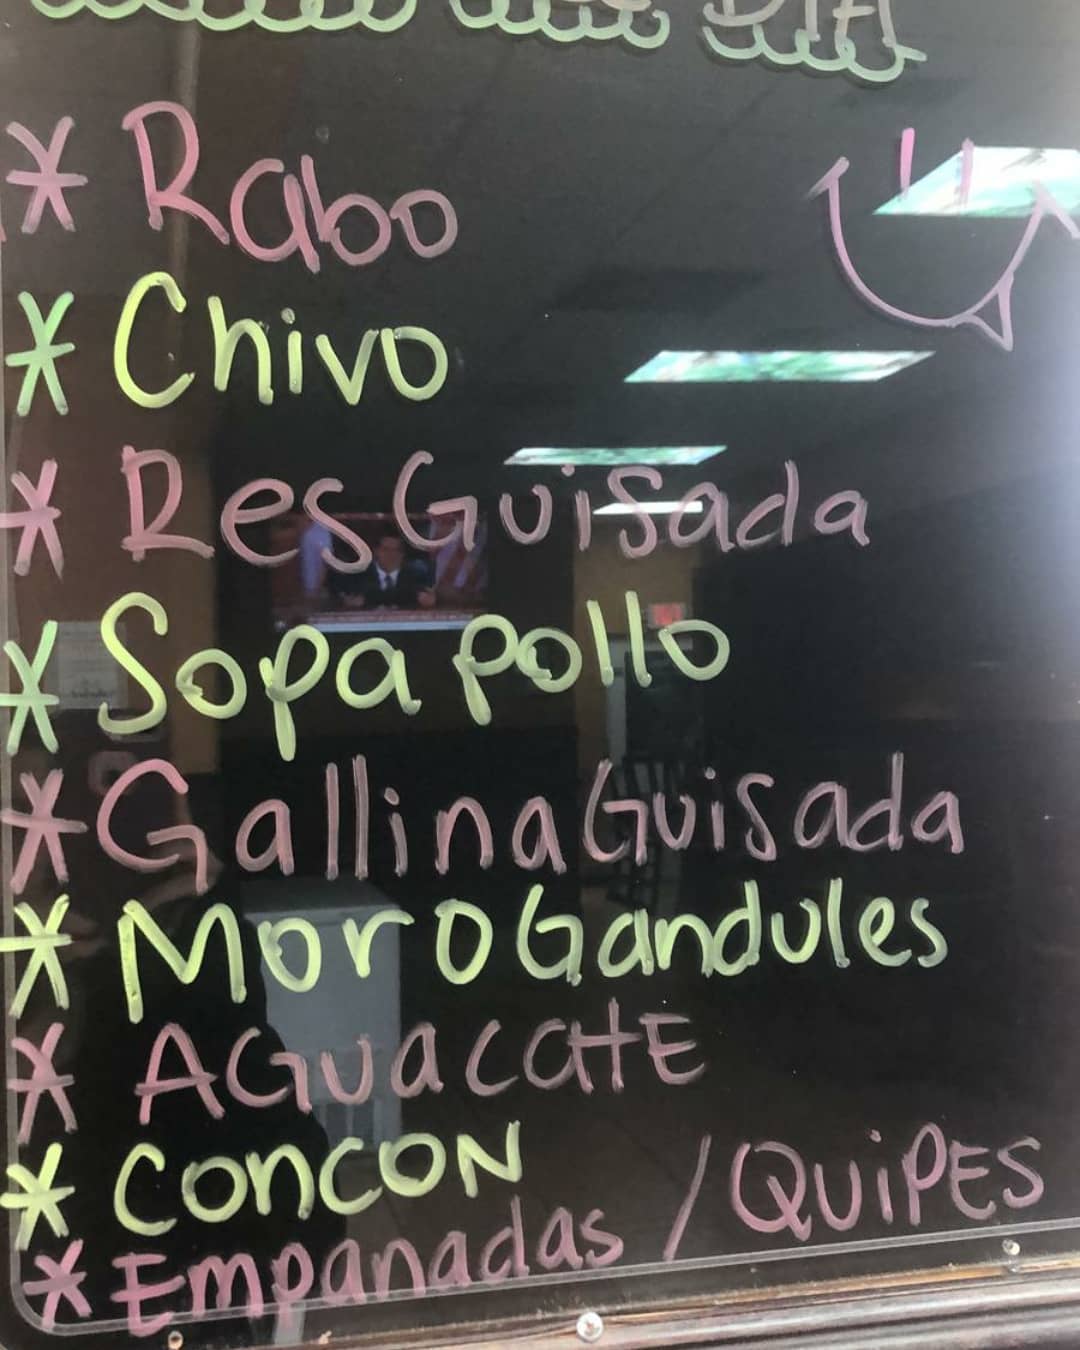 DIA
* Rabo
* Chivo
* Res Guisada
* Sopa pollo
* Gallina Guisada
* Moro Gandules
* AGuacatE
* CONCON
* Empanadas / QUiPES